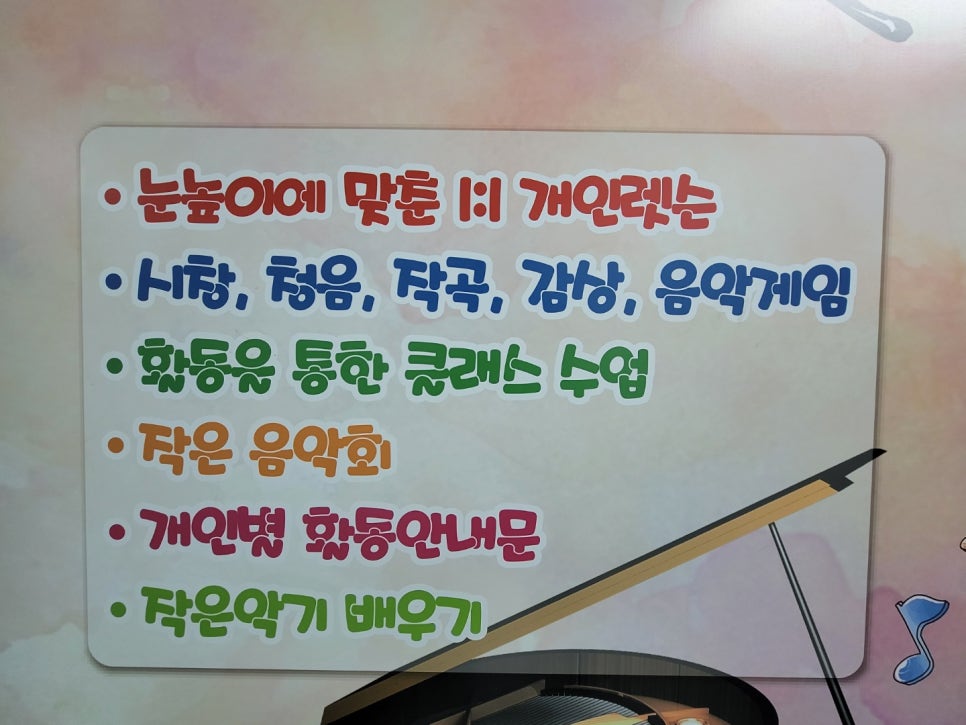 • 눈높이에 맞춘 1:1 개인렛슨
• 시창, 청음, 작곡, 감상, 음악게임
• 활동을 통한 클래스 수업
• 작은 음악회
• 개인별 활동안내문
• 작은악기 배우기